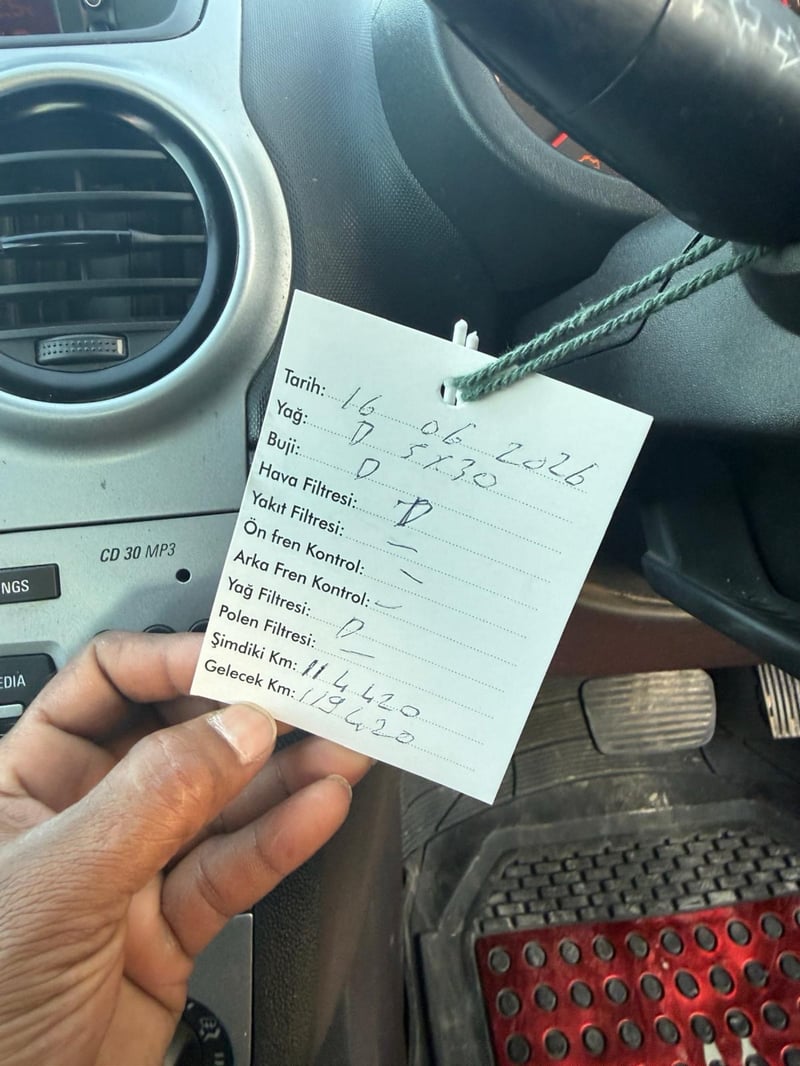 Tarih: 16 06 2026
Yağ: D 5X30
Buji: D
Hava Filtresi: D
Yakıt Filtresi: —
Ön fren Kontrol: —
Arka Fren Kontrol: —
Yağ Filtresi: D
Polen Filtresi: —
Şimdiki Km: 114.420
Gelecek Km: 119420
CD 30 MP3
NGS
EDIA